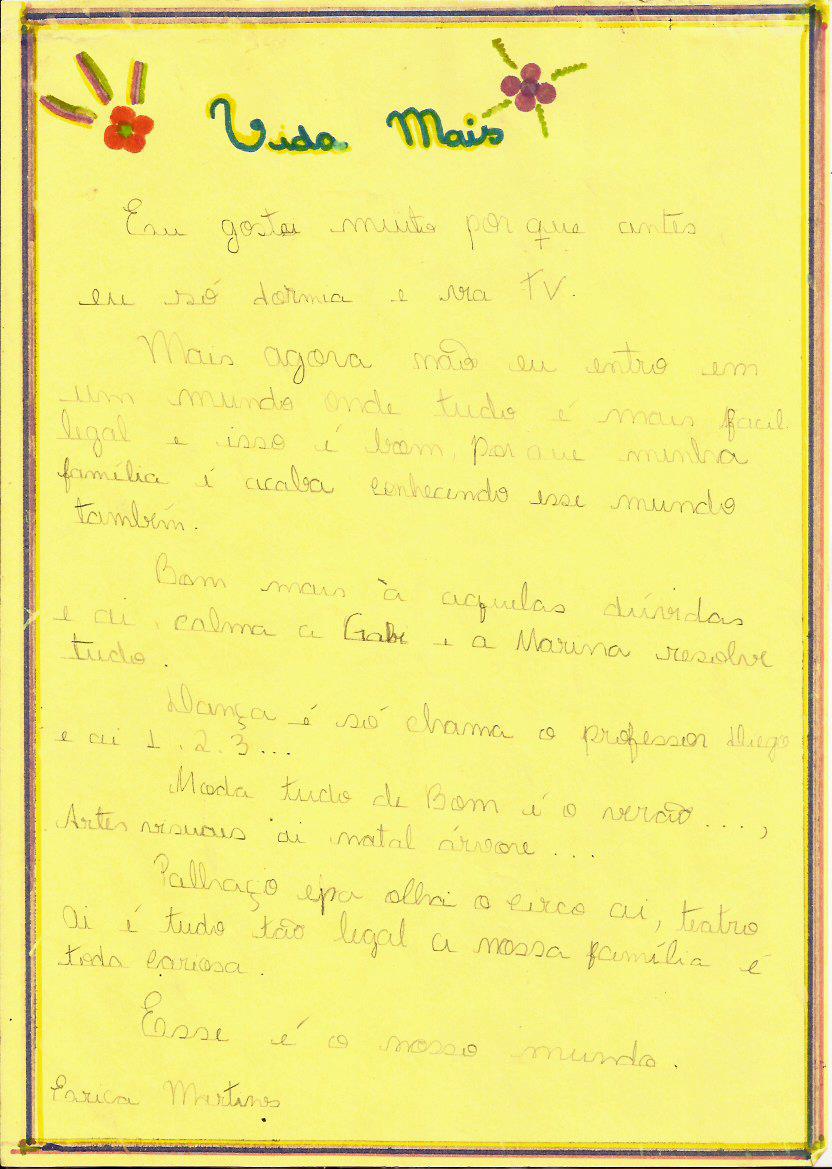 Vida Mais
Eu gostei muito por que antes
eu só dormia e via TV.
Mais agora não eu entro em
um mundo onde tudo é mais facil.
legal e isso é bom, por que minha
família é acaba conhecendo esse mundo
também.
Bom mais à aquelas dúvidas
e ai, calma a Gabi e a Marina resolve
tudo.
Dança é só chama o professor Diego
e ai 1.2.3...
Moda tudo de Bom é o verão...,
Artes visuais ai natal árvore...
Palhaço epa olha o circo ai, teatro
Ai é tudo tão legal a nossa família é
toda
Esse é o nosso mundo.
Martines